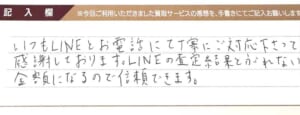 記入欄
※今回ご利用いただきました買取サービスの感想を、手書きにてご記入お願いします
いつもLINEとお電話にて丁寧にご対応下さって
感謝しております。LINEの査定結果とぶれない
金額になるので信頼できます。